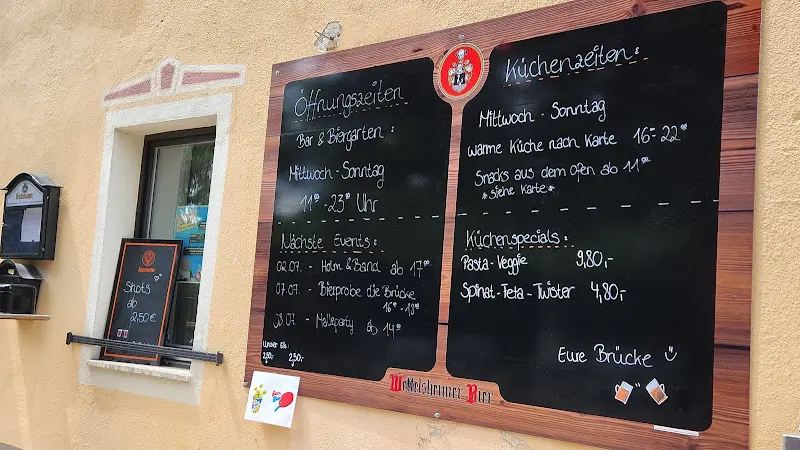 Öffnungszeiten
Bar & Biergarten:
Mittwoch - Sonntag
11⁰⁰ - 23⁰⁰ Uhr
Nächste Events:
02.07. - Holm & Band ab 17⁰⁰
07.07. - Bierprobe die Brücke
16⁰⁰ - 19⁰⁰
ab 14⁰⁰
Unser Eis:
2,50,-
Küchenzeiten:
Mittwoch - Sonntag
warme Küche nach Karte 16⁰⁰ - 22⁰⁰
Snacks aus dem Ofen ab 11⁰⁰
*siehe Karte*
Küchenspecials:
Pasta-Veggie 9,80,-
Spinat-Feta-Twister 4,80,-
Eure Brücke
Wettelsheimer Bier
Shots
ab
2,50€